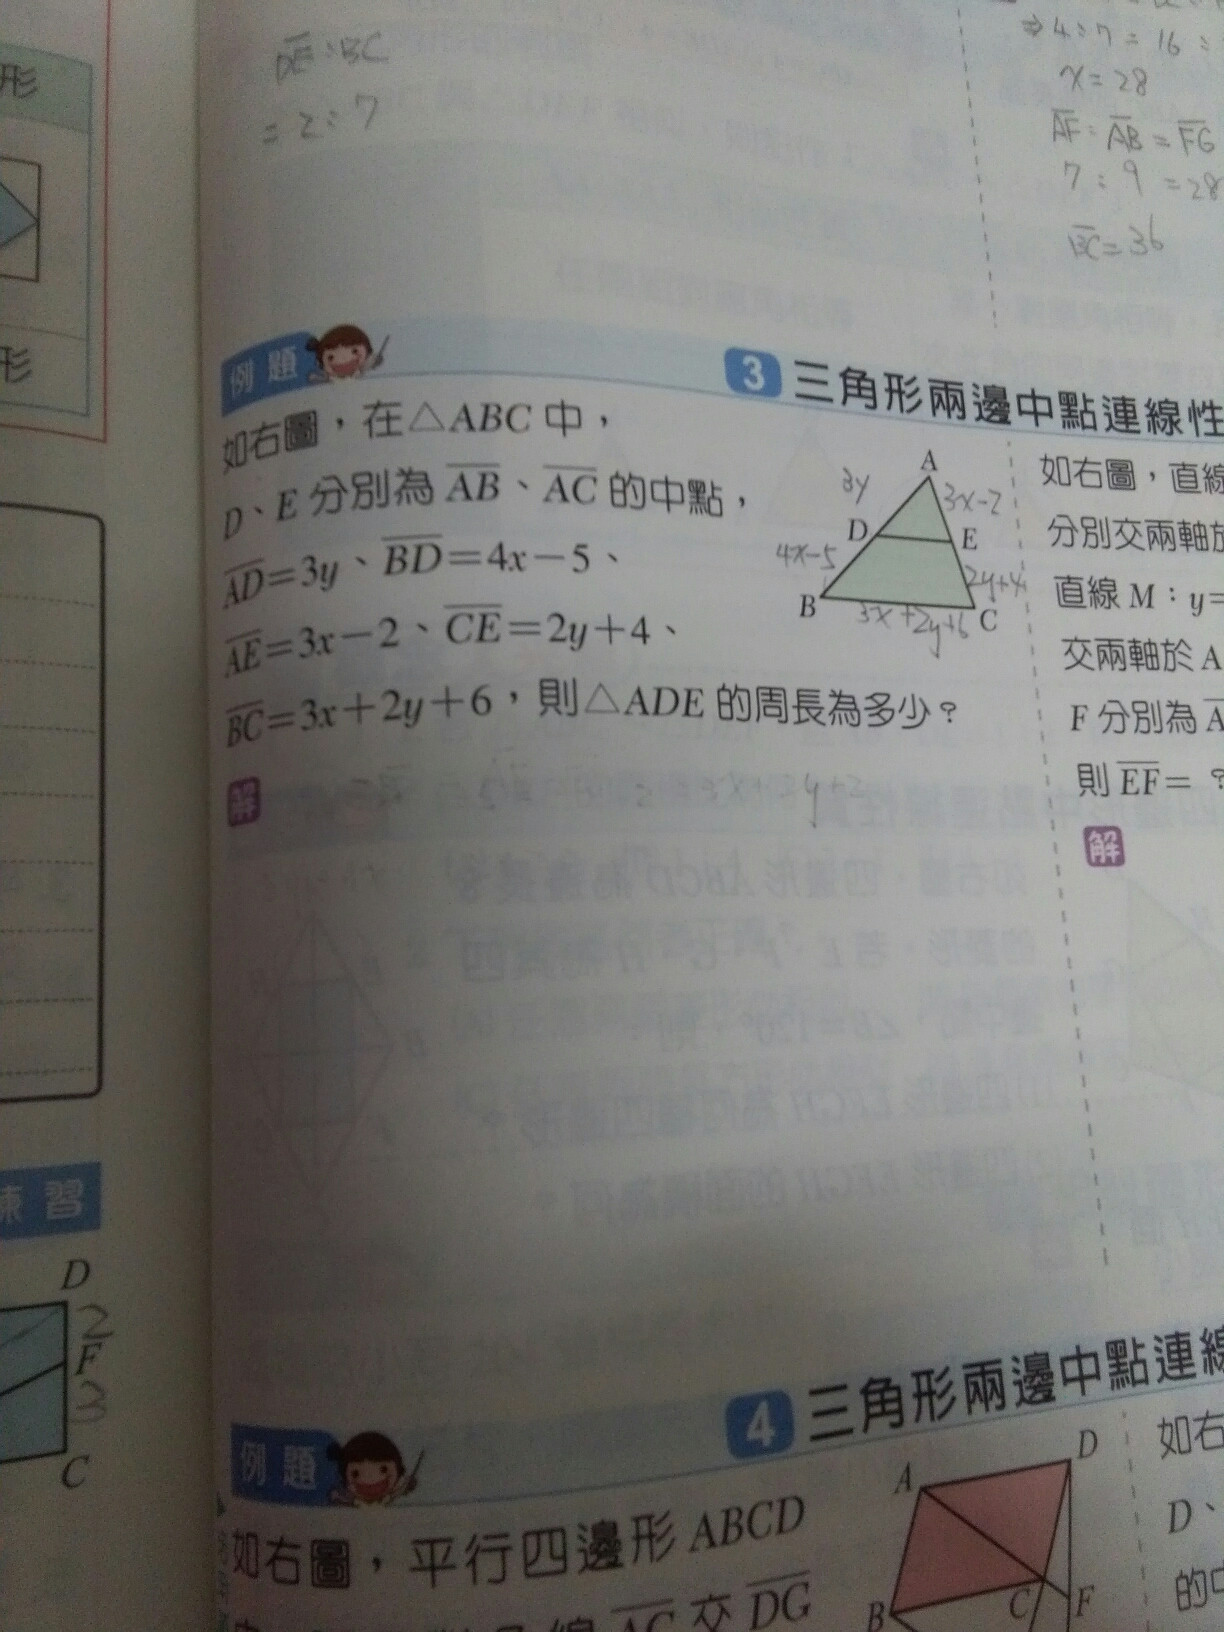 形
形
練習
D
2
F
3
C
DE:BC
=2:7
⇒4:7=16:
x=28
AF:AB=FG
7:9=28
BC=36
例題
3 三角形兩邊中點連線性
如右圖，在△ABC中，
D、E分別為AB、AC的中點，
AD=3y、BD=4x－5、
AE=3x－2、CE=2y＋4、
BC=3x＋2y＋6，則△ADE的周長為多少？
A
3y
3x-2
D
E
4x-5
2y+4
B
3x+2y+6
C
解
如右圖，直線
分別交兩軸於
直線M：y=
交兩軸於A
F分別為A
則EF=？
解
例題
4 三角形兩邊中點連線
如右圖，平行四邊形ABCD
AC交DG
A
D
B
C
F
如右
D、
的中